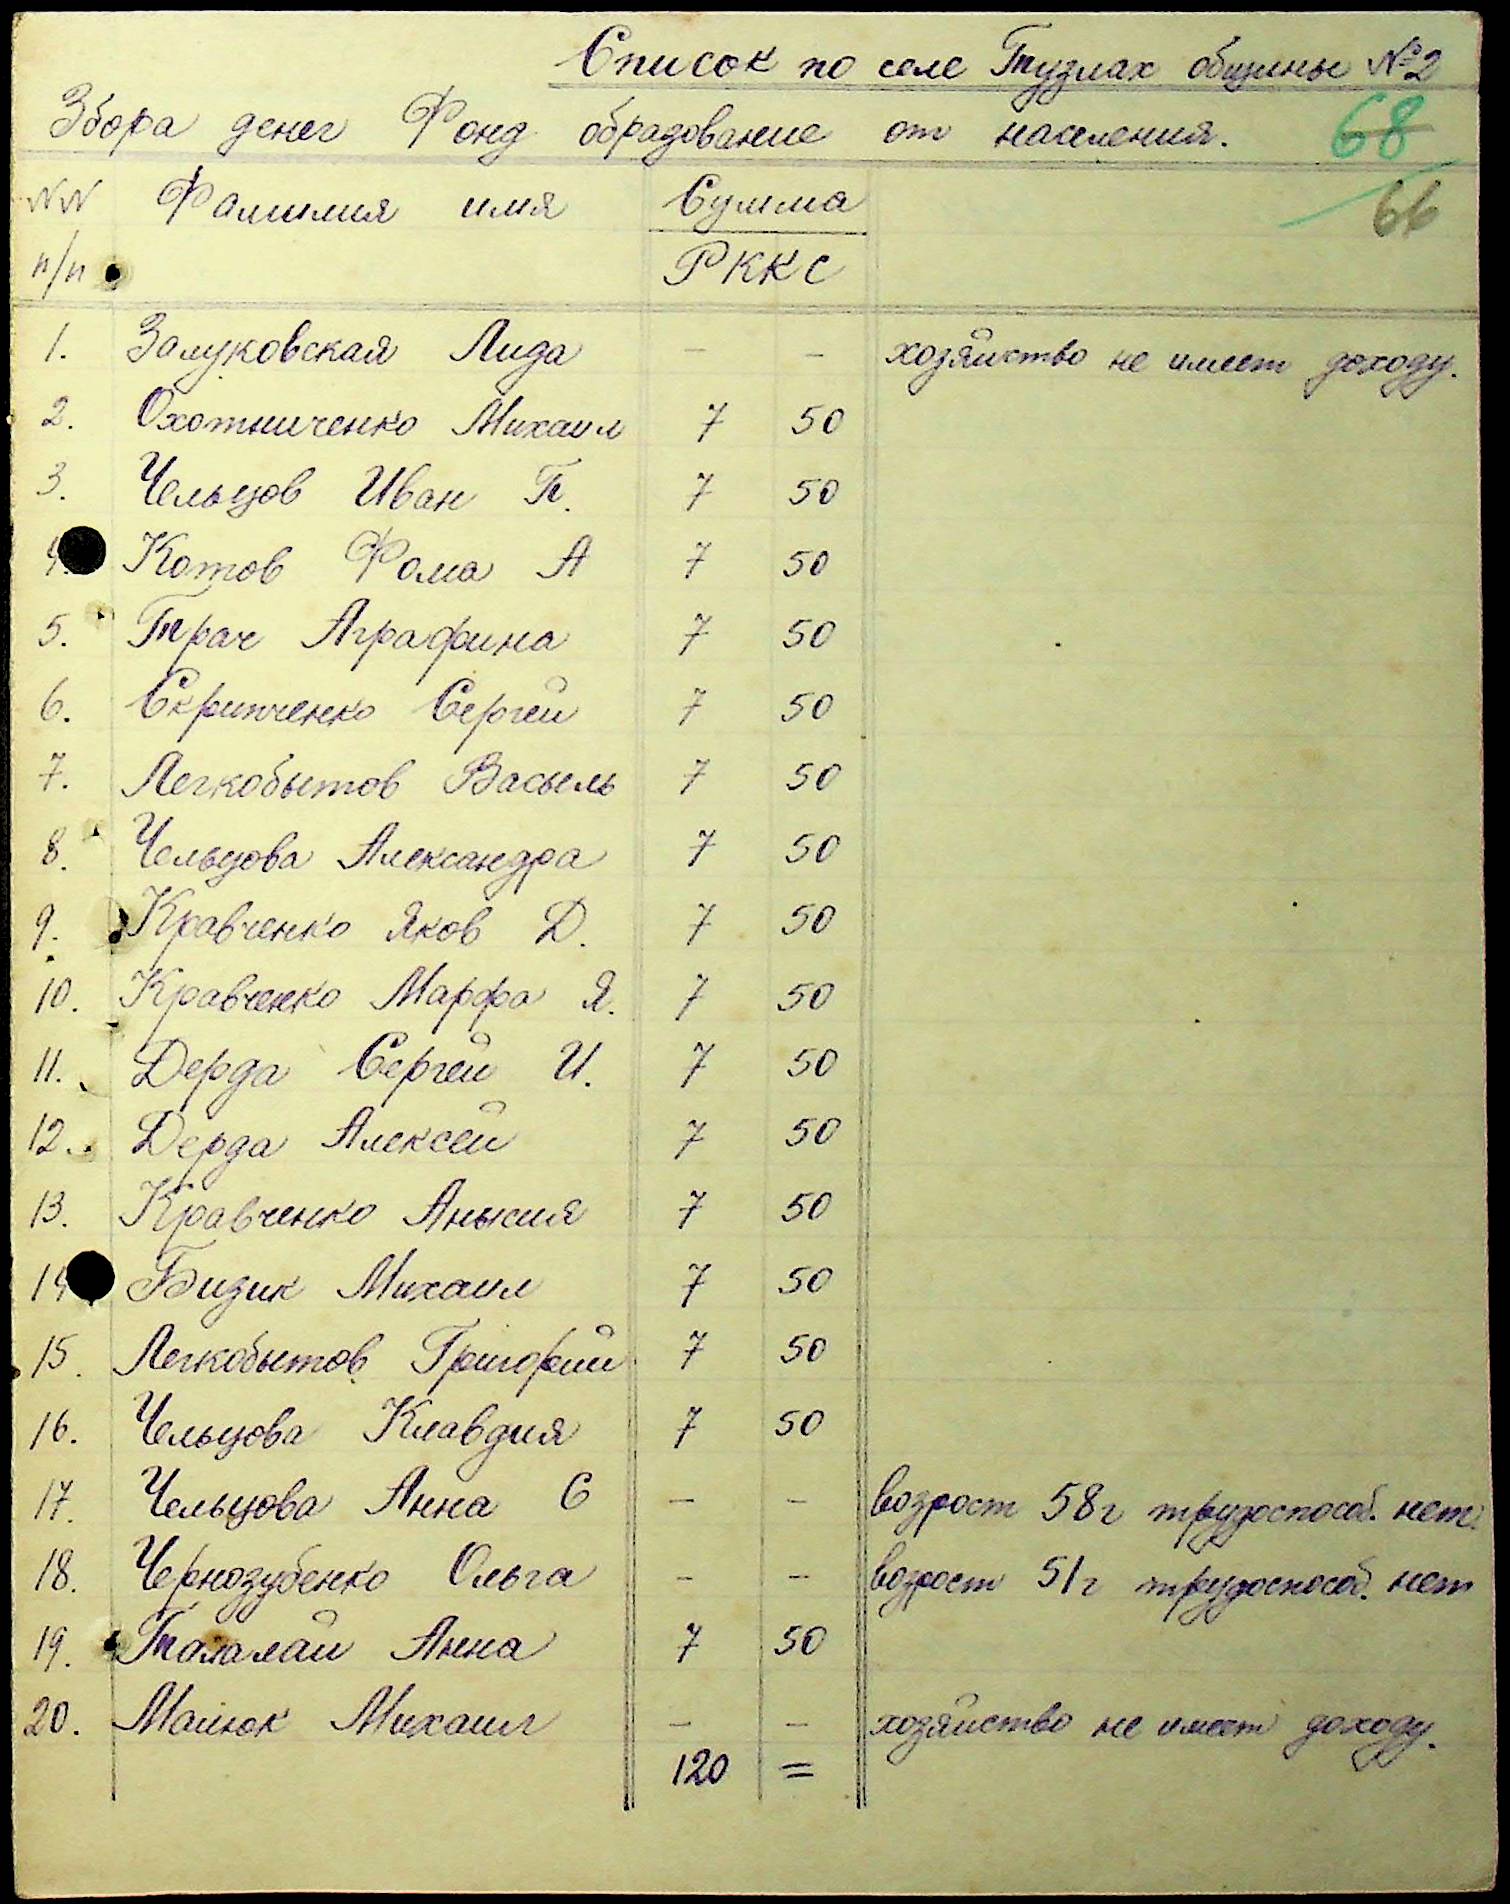 Список по селе Тузлах общины №2
Збора денег Фонд образование от населения.
68
66
NN Фамилия имя Сумма
п/п РККС
1. Залуковская Лида - - хозяйство не имеет доходу.
2. Охотниченко Михаил 7 50
3. Чельцов Иван П. 7 50
4. Котов Фома А 7 50
5. Трач Аграфина 7 50
6. Скрипченко Сергей 7 50
7. Легкобытов Васыль 7 50
8. Чельцова Александра 7 50
9. Кравченко Яков Д. 7 50
10. Кравченко Марфа Я. 7 50
11. Дерда Сергей И. 7 50
12. Дерда Алексей 7 50
13. Кравченко Анысия 7 50
14 Бизик Михаил 7 50
15. Легкобытов Григорий 7 50
16. Чельцова Клавдия 7 50
17. Чельцова Анна С - - возрост 58г трудоспособ. нет.
18. Чернозубенко Ольга - - возрост 51г трудоспособ. нет
19. Талалай Анна 7 50
20. Малюк Михаил - - хозяйство не имеет доходу.
120 =